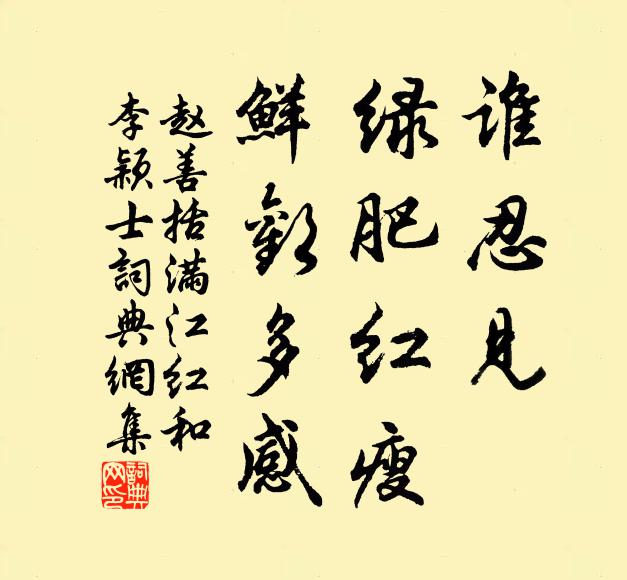 谁忍见
绿肥红瘦
鲜欢多感
赵善括满江红和
李颖士詞典網集
詞典
网印